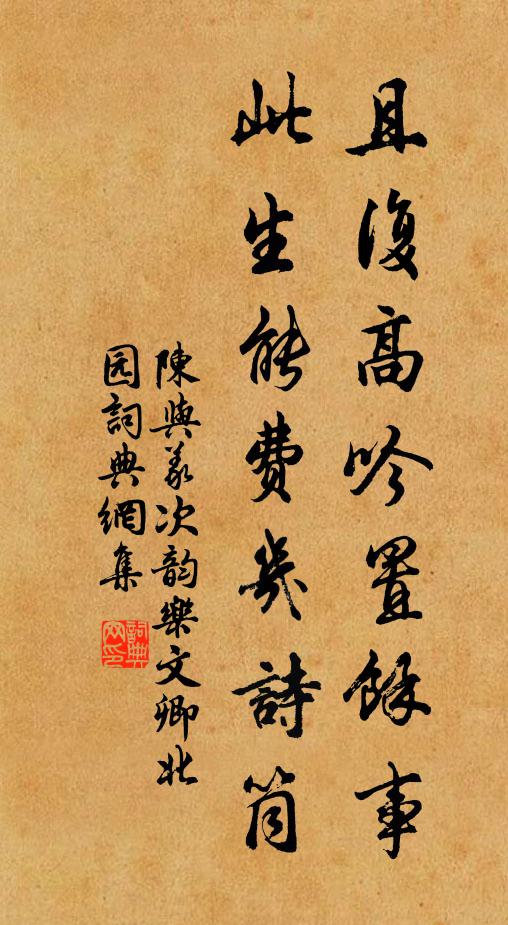 且復高吟置餘事
此生能費幾詩筒
陳與義次韵樂文卿北
园詞典網集
詞典
网印